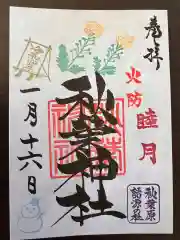 奉拝
火防
睦月
秋葉神社
一月十六日
秋葉原
諸源社